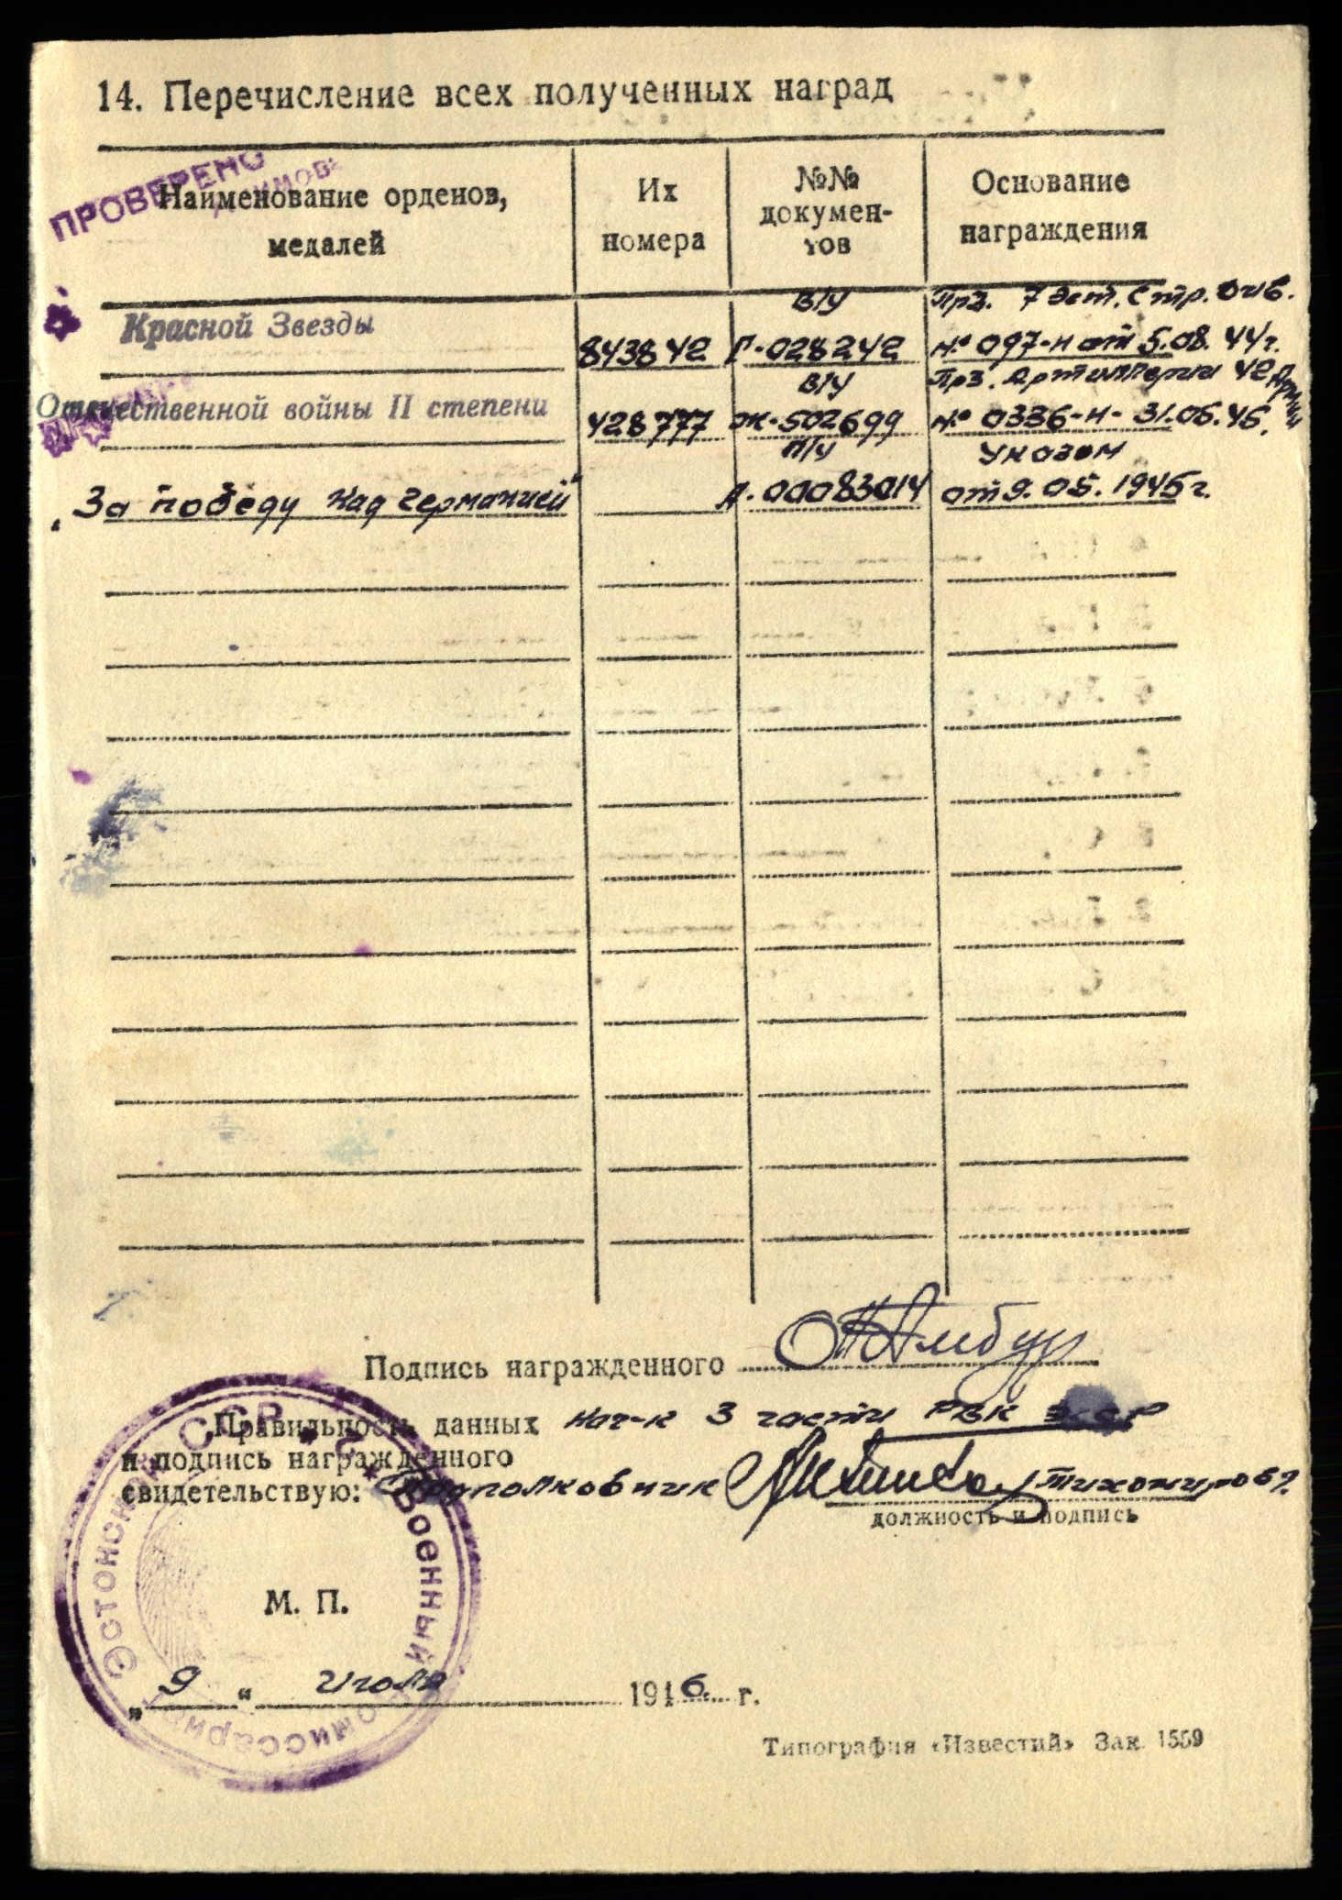 14. Перечисление всех полученных наград
ПРОВЕРЕНО
Наименование орденов,
медалей
Их
номера
№№
докумен-
тов
Основание
награждения
Красной Звезды
843842
В/У
Г-028242
Прз. 7 Эст. Стр. див.
№ 097-н от 5.08.44г.
Отечественной войны II степени
428777
В/У
Ж-502699
Прз. Артиллерии 42 Армии
№ 0336-н- 31.05.45.
„За победу над Германией"
П/У
А.00083014
Указом
от 9.05.1945г.
Подпись награжденного
Правильность данных Нач-к 3 части РВК ЭССР
и подпись награжденного
свидетельствую: Подполковник /Тихомиров/.
должность и подпись
Эстонской ССР * Военный комиссариат
М. П.
„ 9 “ Июля 1946. г.
Типография «Известий» Зак. 1559